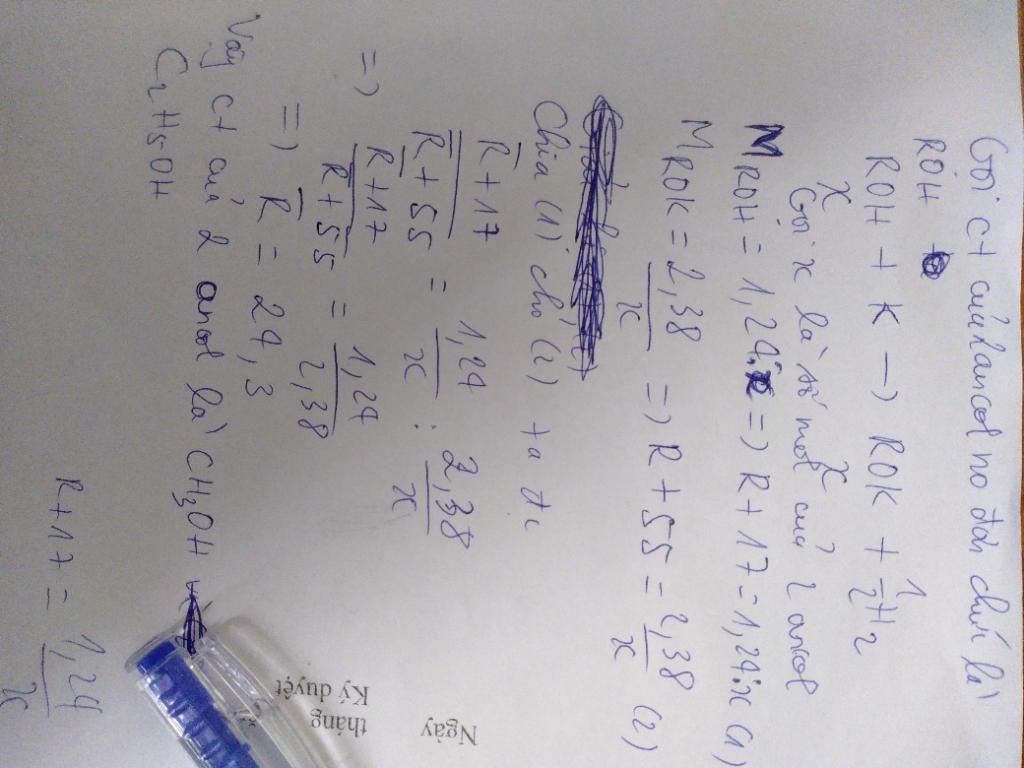 Gọi ct của 2 ancol no đơn chức là
ROH
ROH + K → ROK + 1/2 H2
x x
Gọi x là số mol của 2 ancol
MROH = 1,24 : x => R + 17 = 1,24 : x (1)
MROK = 2,38/x => R + 55 = 2,38/x (2)
Chia (1) cho (2) ta đc
(R̄ + 17)/(R̄ + 55) = 1,24/x : 2,38/x
=> (R̄ + 17)/(R̄ + 55) = 1,24/2,38
=> R̄ = 24,3
Vậy ct của 2 ancol là CH3OH
C2H5OH
R + 17 = 1,24/x
Ngày tháng
Ký duyệt